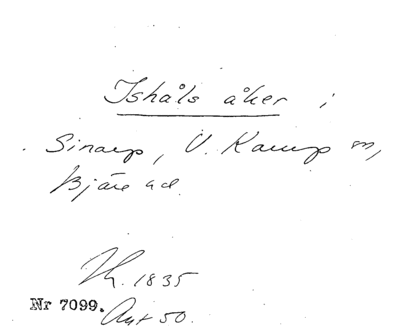 Ishåls åker i
Sinarp, V. Karup sn,
Bjäre hd.
1835
Nr 7099. Akt 50.